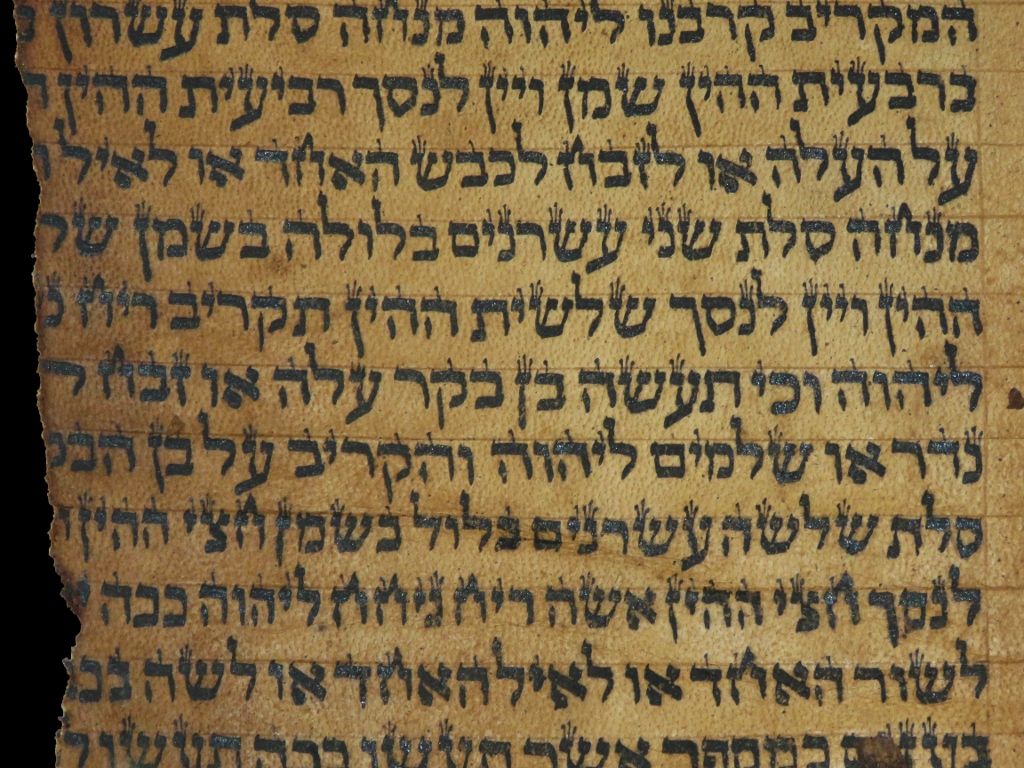 המקריב קרבנו ליהוה מנחה סלת עשרון
ברבעית ההין שמן ויין לנסך רביעית ההין
על העלה או לזבח לכבש האחד או לאיל
מנחה סלת שני עשרנים בלולה בשמן
ההין ויין לנסך שלשית ההין תקריב ריח
ליהוה וכי תעשה בן בקר עלה או זבח
נדר או שלמים ליהוה והקריב על בן
סלת שלשה עשרנים בלול בשמן חצי ההין
לנסך חצי ההין אשה ריח ניחח ליהוה ככה
לשור האחד או לאיל האחד או לשה
במספר אשר תעשו ככה תעשו